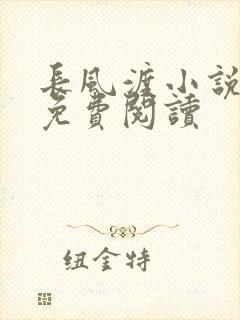 長風渡小說
免費閱讀
纽金特